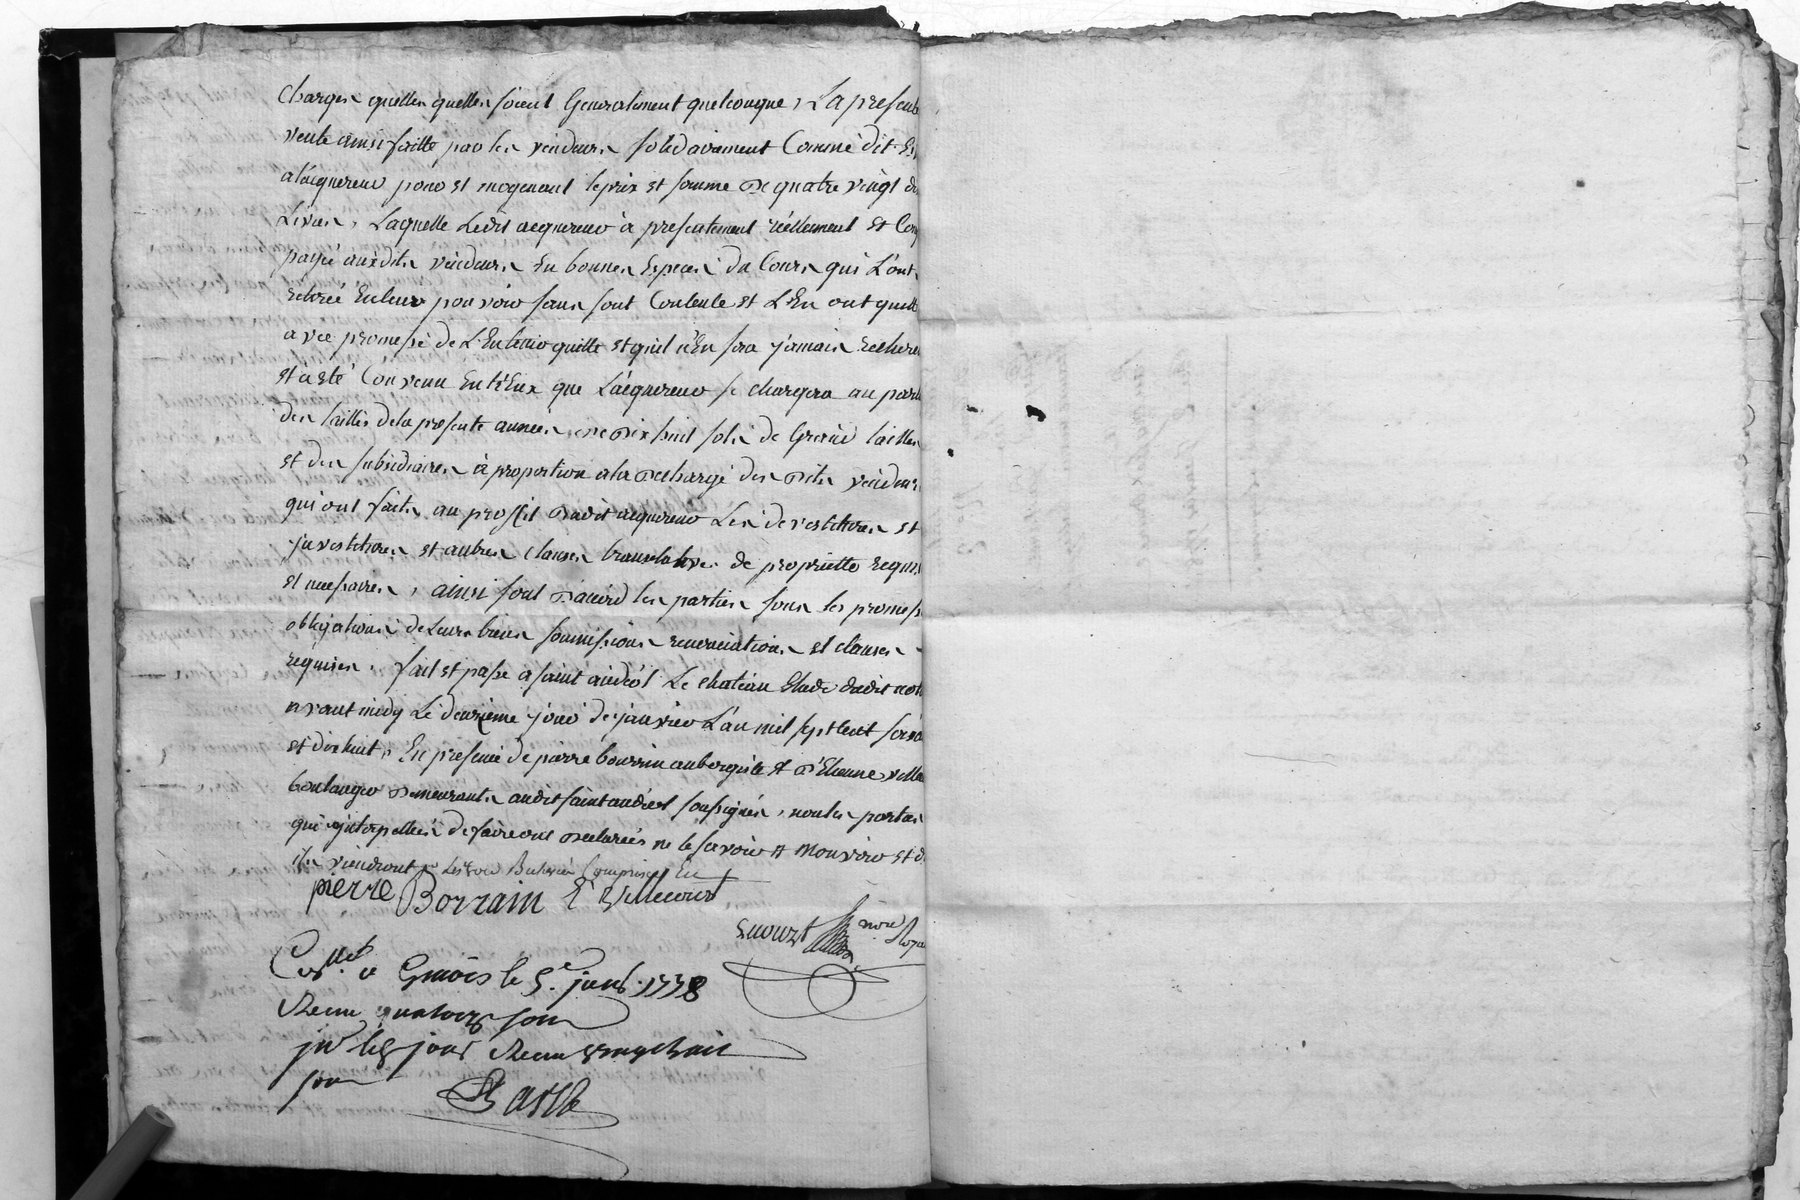 charges quelles quelles soient Generalement quelconque, La presente
vente ainsi faitte par les vendeurs solidairement Comme dit Est
a lacquereur pour et moyenant le prix et somme de quatre vingt di
Livres, Laquelle Ledit acquereur à presentement réellement et Com
payée auxdits vendeurs En bonnes Especes du Cours qui L'ont
retirée En leur pouvoir sens sont Contents et L'En ont quitté
avec promesse de L'En tenir quitte et quil n'En sera jamais recherc
et à esté Convenu Entr'Eux que Lacquereur se chargera au
des tailles de la presente année, de dix huit sols de Grand tailles
et des subsidiaires à proportion a la decharge des dits vendeurs
qui ont faits au proffit dudit acquereur Les devestitures et
investitures et autres clauses translatives de propriette requises
et necessaires, ainsi sont d'accord les parties sous les promesses
obligations de Leurs biens soumissions renonciations et clauses
requises. fait et passé a saint andéol Le chateau Etude dudit not
avant midy Le deuxième jour de janvier L'an mil sept cent soixa
et dix huit, En presence de pierre bourrin aubergiste et d'Etienne ville
boulanger demeurants audit saint andéol soussignés, non les parties
qui interpellées de faire ont declarées ne le scavoir
ils viendront
pierre Borrain E Villecourt
not Royal
a le 5e janv. 1778
Recu quatorze sous
led jour Recu
sous